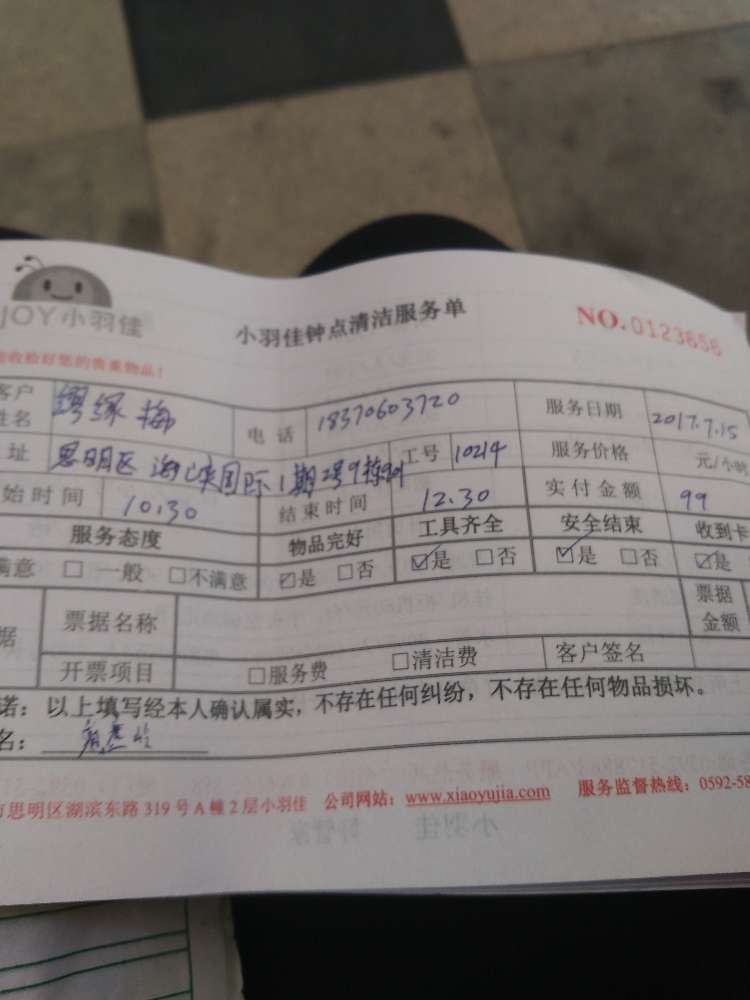 JOY小羽佳
小羽佳钟点清洁服务单
NO.0123656
收检好您的贵重物品!
客户姓名 缪缘梅 电话 18370603720 服务日期 2017.7.15
址 思明区海峡国际1期2号9栋 工号 10214 服务价格 元/小时
始时间 10:30 结束时间 12.30 实付金额 99
服务态度 物品完好 工具齐全 安全结束 收到卡
满意 □一般 □不满意 ☑是 □否 ☑是 □否 ☑是 □否 ☑是
据 票据名称 票据金额
开票项目 □服务费 □清洁费 客户签名
诺:以上填写经本人确认属实,不存在任何纠纷,不存在任何物品损坏。
名:
思明区湖滨东路319号A幢2层小羽佳 公司网站:www.xiaoyujia.com 服务监督热线:0592-58